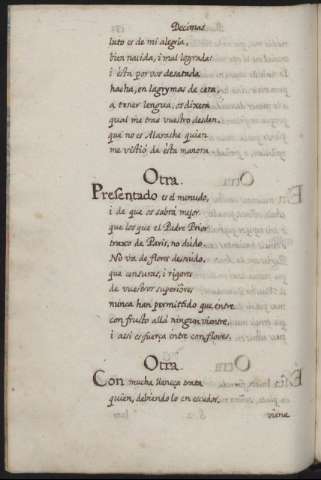 Decimas
luto es de mi alegria,
bien nacida, i mal lograda:
i esta por vos desatada
hacha, en lagrymas de cera,
a tener lengua, os dixera
qual me trae vuestro desden,
que no es Alarache quien
me vistiò de esta manera
Otra.
Presentado es el menudo,
i de que os sabrà mejor
que los que el Padre Prior
traxo de Paris, no dudo.
No va de flores desnudo,
que censuras, i rigores
de vuestros superiores
nunca han permittido que entre
con frutto allà ningun vientre,
i assi es fuerça entre con flores.
Otra.
Con mucha llaneça trata
quien, debiendolo en escudos,
viene